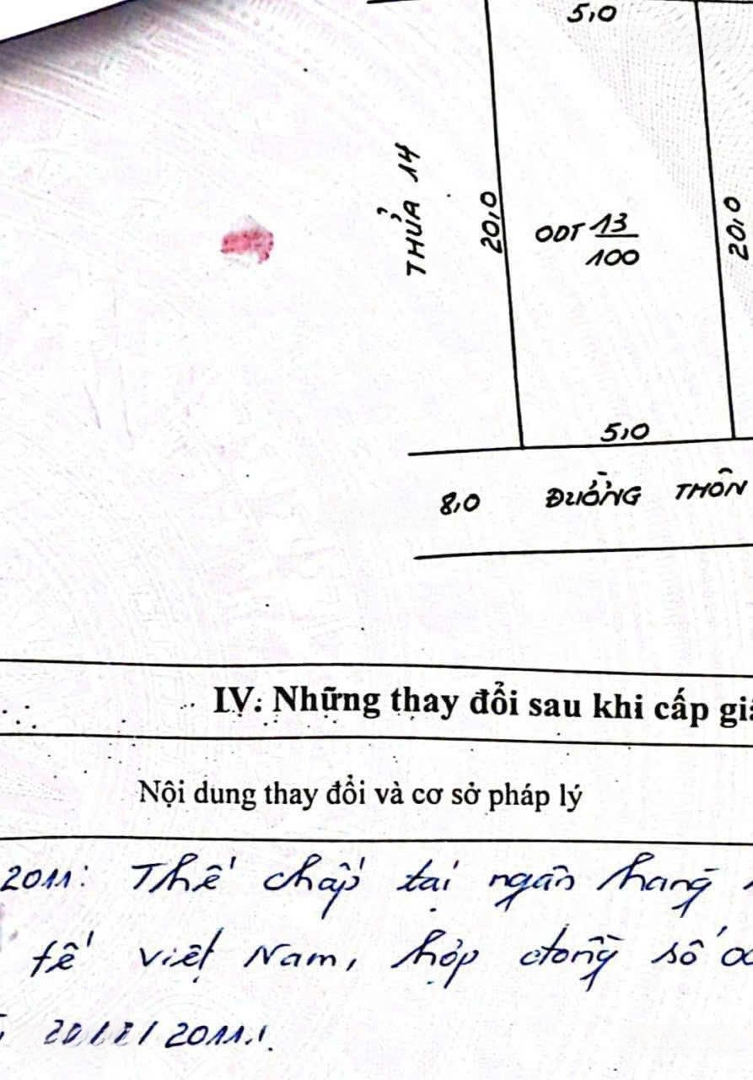 5,0
THỬA 14
20,0
ODT 13/100
20,0
5,0
8,0 ĐƯỜNG THÔN
IV. Những thay đổi sau khi cấp
Nội dung thay đổi và cơ sở pháp lý
2011: Thế chấp tại ngân hàng
tế Việt Nam, hợp đồng số
2011.